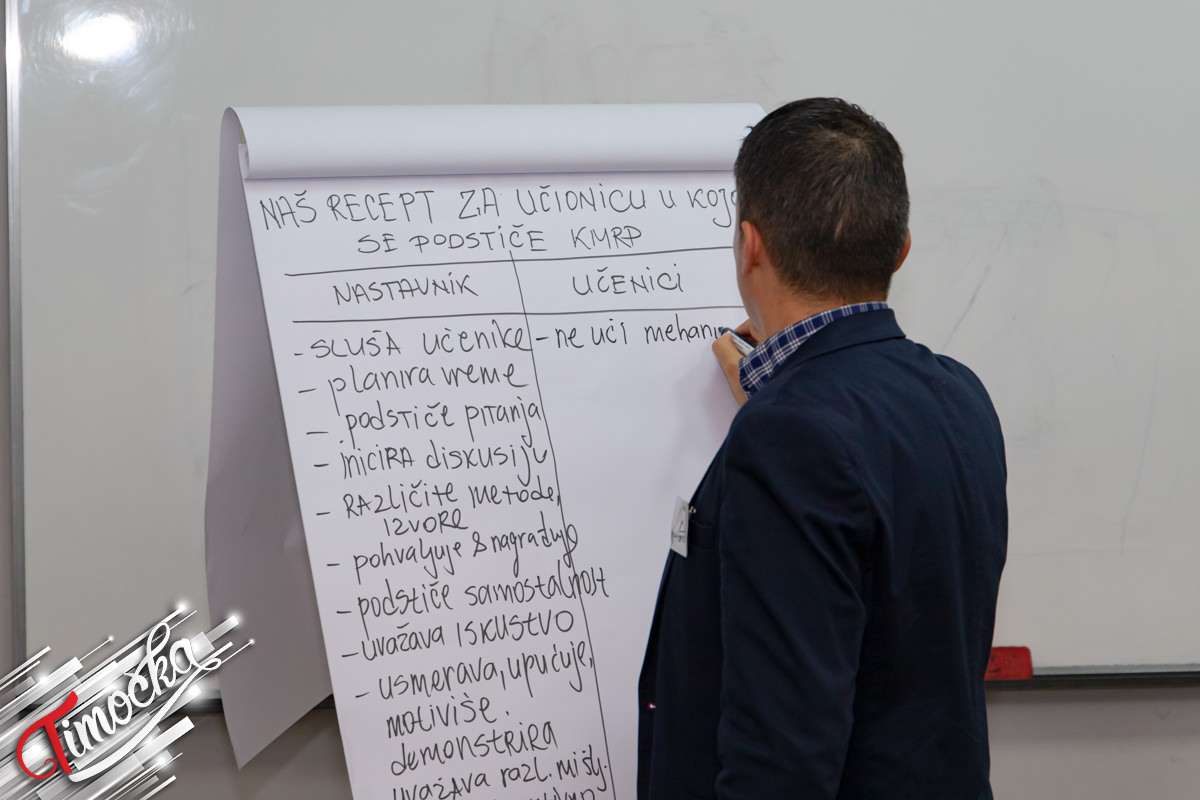 NAŠ RECEPT ZA UČIONICU U KOJO
SE PODSTIČE KMRP
NASTAVNIK
UČENICI
- SLUŠA učenike
- planira vreme
- podstiče pitanja
- iniciRA diskusiju
- RAZLIČITE metode,
IZVORE
- pohvaljuje & nagrađuje
- podstiče samostalnost
- uvažava ISKUSTVO
- usmerava, upućuje,
motiviše.
demonstrira
uvažava razl. mišlj.
- ne uči mehani
Timočka